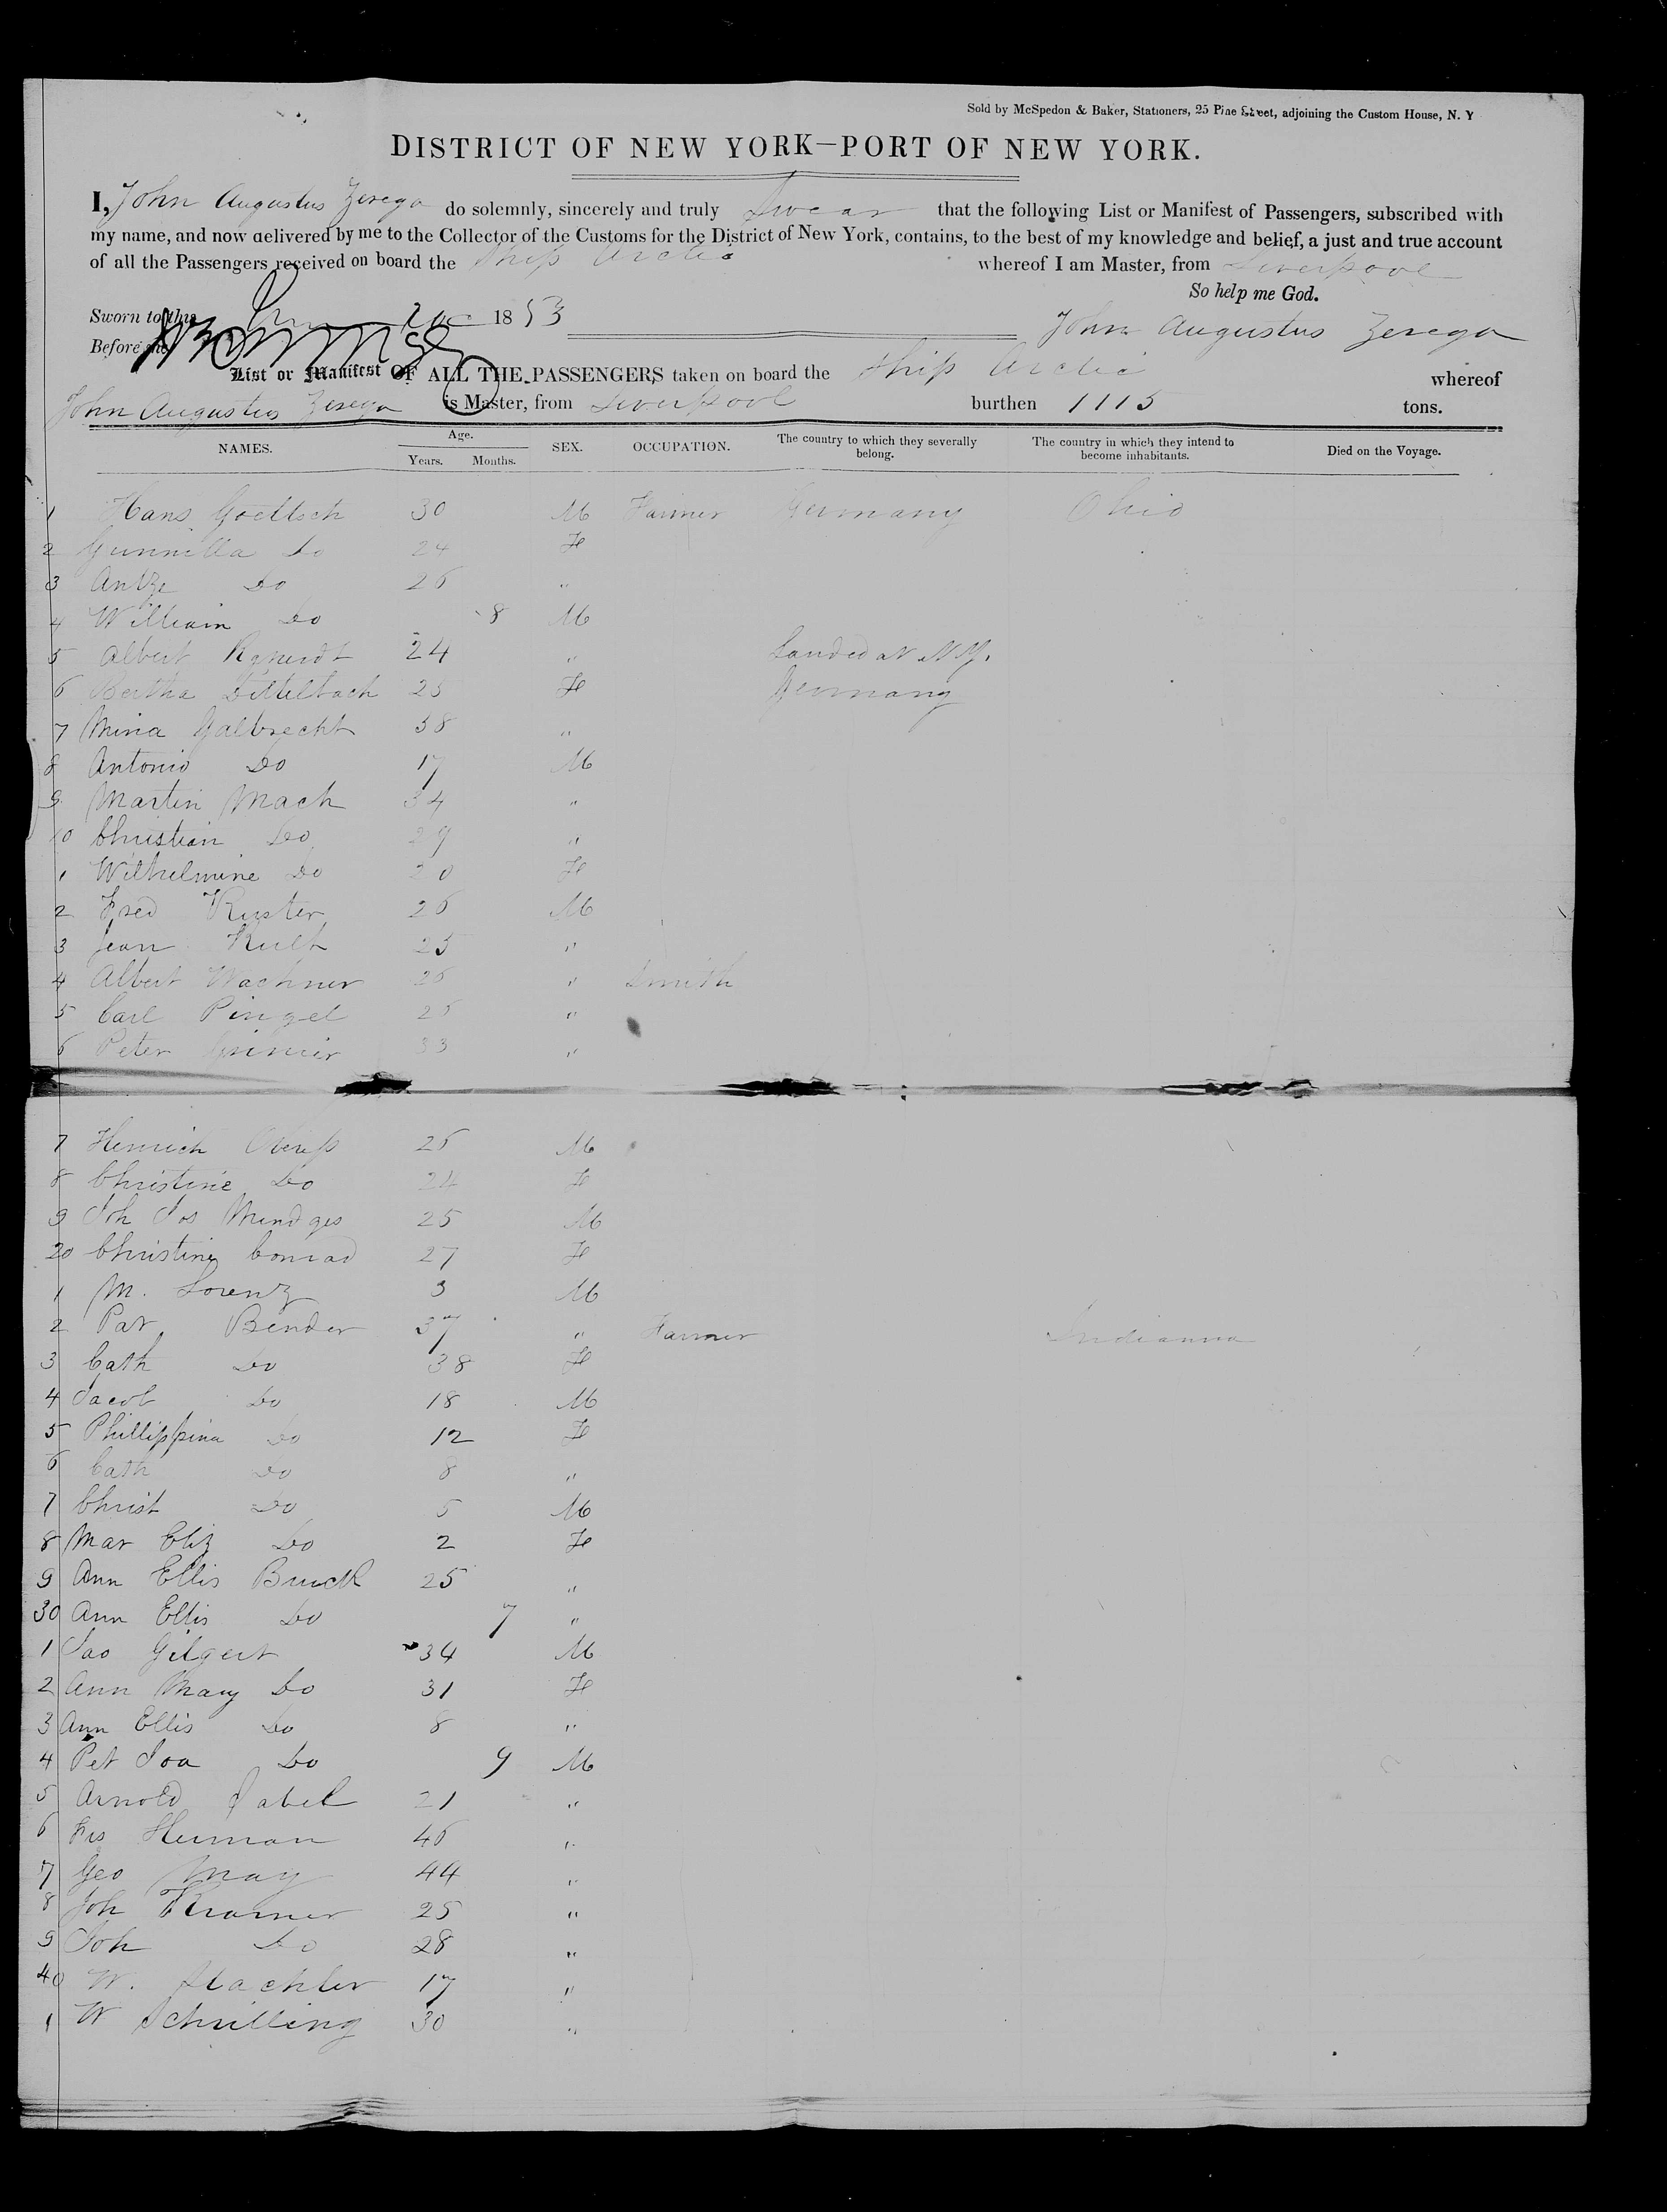 Sold by McSpedon & Baker, Stationers, 25 Pine Street, adjoining the Custom House, N. Y
DISTRICT OF NEW YORK—PORT OF NEW YORK.
I, John Augustus Zerega do solemnly, sincerely and truly Swear that the following List or Manifest of Passengers, subscribed with
my name, and now delivered by me to the Collector of the Customs for the District of New York, contains, to the best of my knowledge and belief, a just and true account
of all the Passengers received on board the Ship Arctic whereof I am Master, from Liverpool
So help me God.
Sworn to this 1853
John Augustus Zerega
Before me
List or Manifest OF ALL THE PASSENGERS taken on board the Ship Arctic whereof
John Augustus Zerega is Master, from Liverpool burthen 1115 tons.
NAMES. Age. Years. Months. SEX. OCCUPATION. The country to which they severally belong. The country in which they intend to become inhabitants. Died on the Voyage.
1 Hans Goettsch 30 M Farmer Germany Ohio
2 Gunnilla Do 24 F
3 Antze Do 26 "
4 William Do 8 M
5 Albert 24 " Landed at N.Y.
6 Bertha Dittelbach 23 F Germany
7 Mina Galbrecht 38 "
8 Antonio Do 17 M
9 Martin Mach 34 "
10 Christian Do 29 "
1 Wilhelmine Do 20 F
2 Fred Kuster 26 M
3 Jean Kult 25 "
4 Albert Wachner 26 " Smith
5 Carl Pingel 26 "
6 Peter 33 "
7 Henrich 26 M
8 Christine Do 24 F
9 Joh Jos Mindges 25 M
20 Christine Conrad 27 F
1 M. Lorenz 3 M
2 Pat Bender 37 " Farmer Indianna
3 Cath Do 38 F
4 Jacob Do 18 M
5 Phillippina Do 12 F
6 Cath Do 8 "
7 Christ Do 5 M
8 Mar Eliz Do 2 F
9 Ann Ellis Buick 25 "
30 Ann Ellis Do 7 "
1 Jao Gilgert 34 M
2 Ann Mary Do 31 F
3 Ann Ellis Do 8 "
4 Pet Joa Do 9 M
5 Arnold Jabel 21 "
6 Frs Herman 46 "
7 Geo May 44 "
8 Joh Kramer 25 "
9 Joh Do 28 "
40 W. Stachler 17 "
1 W Schrilling 30 "